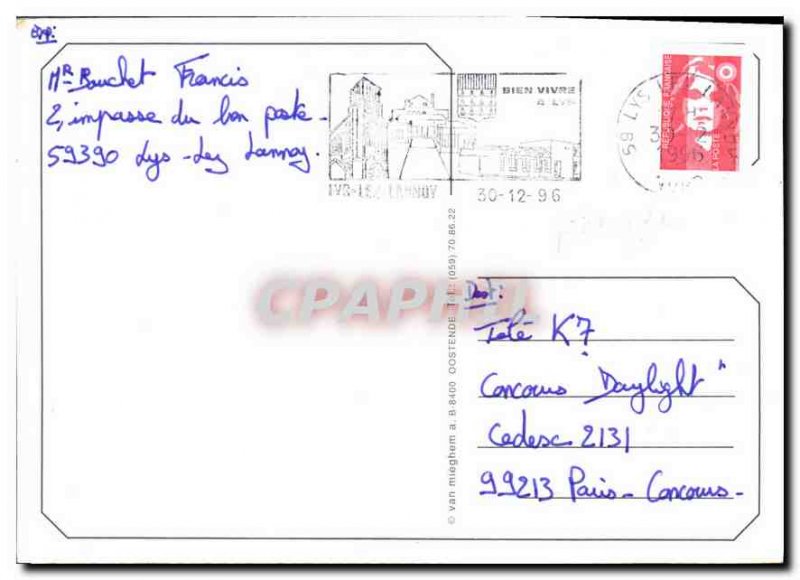 Exp:
Mr Bouchet Francis
2, impasse du bon poste -
59390 Lys-Lez Lannoy.
BIEN VIVRE
A LYS
LYS-LEZ-LANNOY
30-12-96
59 LYS
REPUBLIQUE FRANÇAISE
LA POSTE
© van mieghem a. B-8400 OOSTENDE Tel.: (059) 70.86.22
CPAPHIL
Dest:
Télé K7
Concours Daylight"
Cedesc 2131
99213 Paris - Concours -